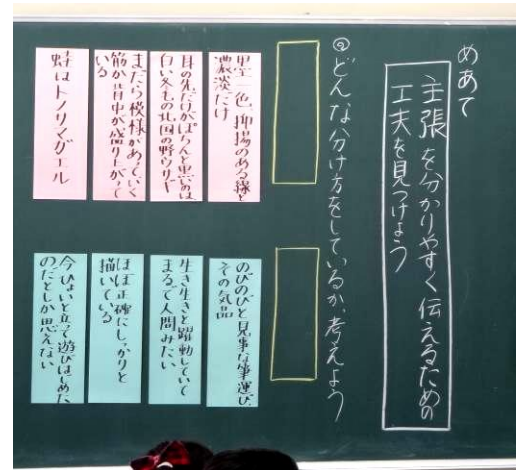 めあて
主張を分かりやすく伝えるための
工夫を見つけよう
◎どんな分け方をしているか、考えよう
墨一色、抑揚のある線と
濃淡だけ
耳の先だけがぽちんと黒いのは
白い冬毛の北国の野ウサギ
まだら模様があっていく
筋か背中が盛り上がって
いる
蛙はトノサマガエル
のびのびと見事な筆運び、
その気品
生き生きと躍動していて
まるで人間みたい
ほぼ正確にしっかりと
描いている
今ひょいと立って遊びはじめた
のだとしか思えない